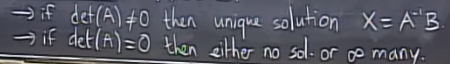 → if det(A)≠0 then unique solution X = A⁻¹B.
→ if det(A)=0 then either no sol. or ∞ many.